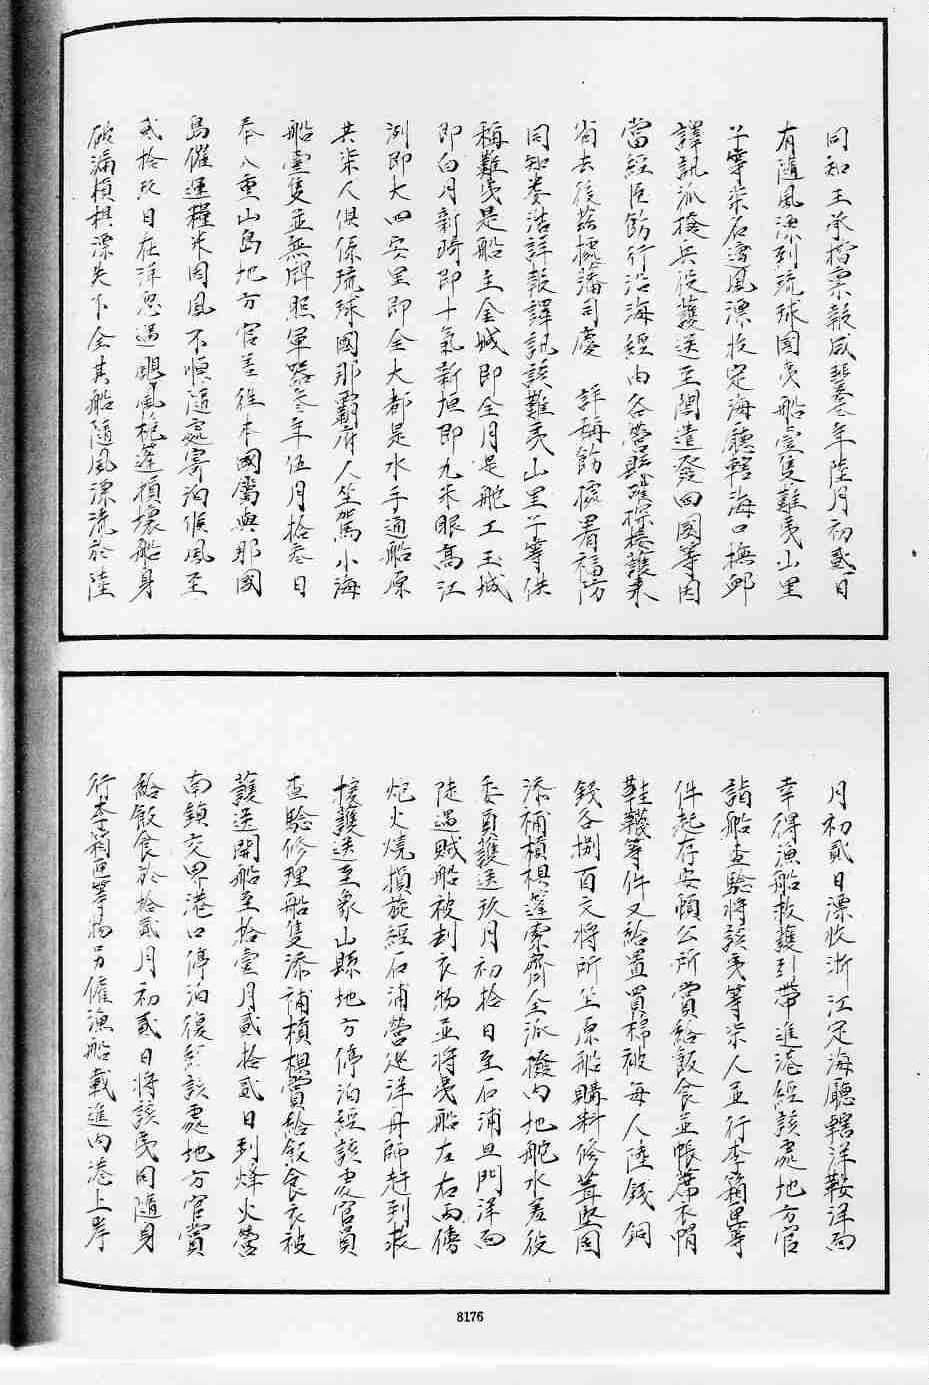 同知王承楷稟報咸豐叁年陸月初貳日
有隨風漂到琉球國夷船壹隻難夷山里
等柒名遭風漂收定海廳轄海口撫卹
譯訊派撥兵役護送至閩遣發回國等因
當經臣飭行沿海經由各營縣確探接護來
省去後茲據藩司慶 詳稱飭據署福防
同知婁浩詳報譯訊該難夷山里等供
稱難夷是船主金城即全月是舵工玉城
即白月新琦即十氣新垣即九禾眼髙江
洌即大四安里即全大都是水手通船原
共柒人俱係琉球國那霸府人坐駕小海
船壹隻並無牌照軍器叁年伍月拾叁日
奉八重山島地方官差往本國屬與那國
島催運糧米因風不順隨處寄泊候風至
貳拾玖日在洋忽遇颶風桅篷損壞船身
破漏槓椇漂失下全其船隨風漂流於陸
月初貳日漂收浙江定海廳轄洋鞍洋面
幸得漁船救護引帶進港經該處地方官
詣船查驗將該夷等柒人並行李箱匣等
件起存安頓公所賞給飯食並帳蓆衣帽
鞋韈等件又給置買棉被每人陸錢銅
錢各捌百文將所坐原船購料修葺堅固
添補槓椇篷索齊全派撥內地舵水差役
委員護送玖月初拾日至石浦旦門洋面
陡遇賊船被刦衣物並將夷船左右兩傍
炮火燒損旋經石浦營巡洋舟師赶到救
援護送至象山縣地方停泊經該處官員
查驗修理船隻添補槓椇賞給飯食衣被
護送開船至拾壹月貳拾貳日到烽火營
南鎮交界港口停泊復經該處地方官賞
給飯食於拾貳月初貳日將該夷同隨身
行李箱匣等物另僱漁船載進內港上岸
8176